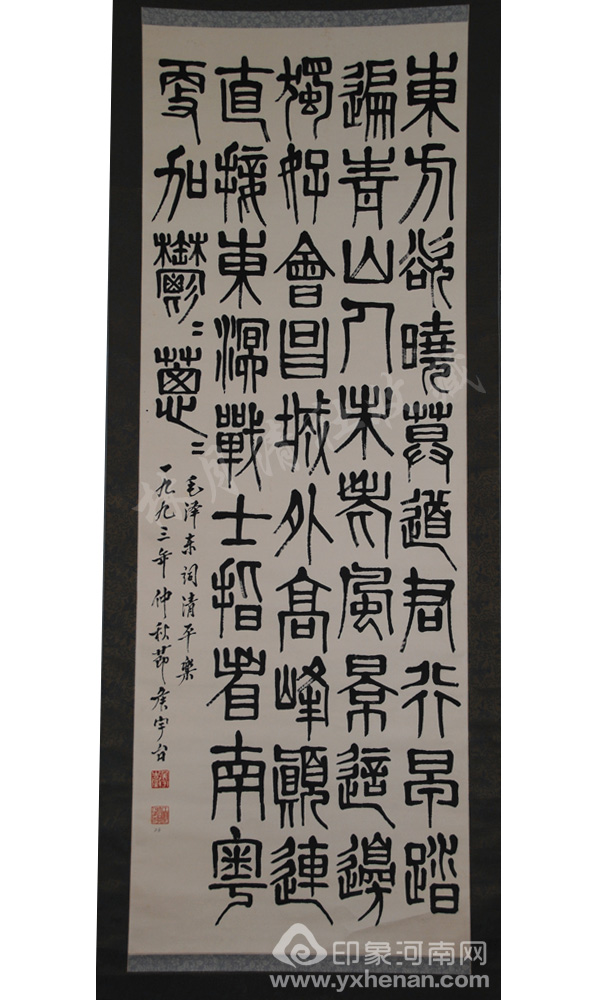 東方欲曉莫道君行早踏
遍青山人未老風景這邊
獨好會昌城外高峰顛連
直接東溟戰士指看南粵
更加鬱〻蔥〻
毛泽东词清平樂
一九九三年仲秋節侯宇台
印象河南网
www.yxhenan.com